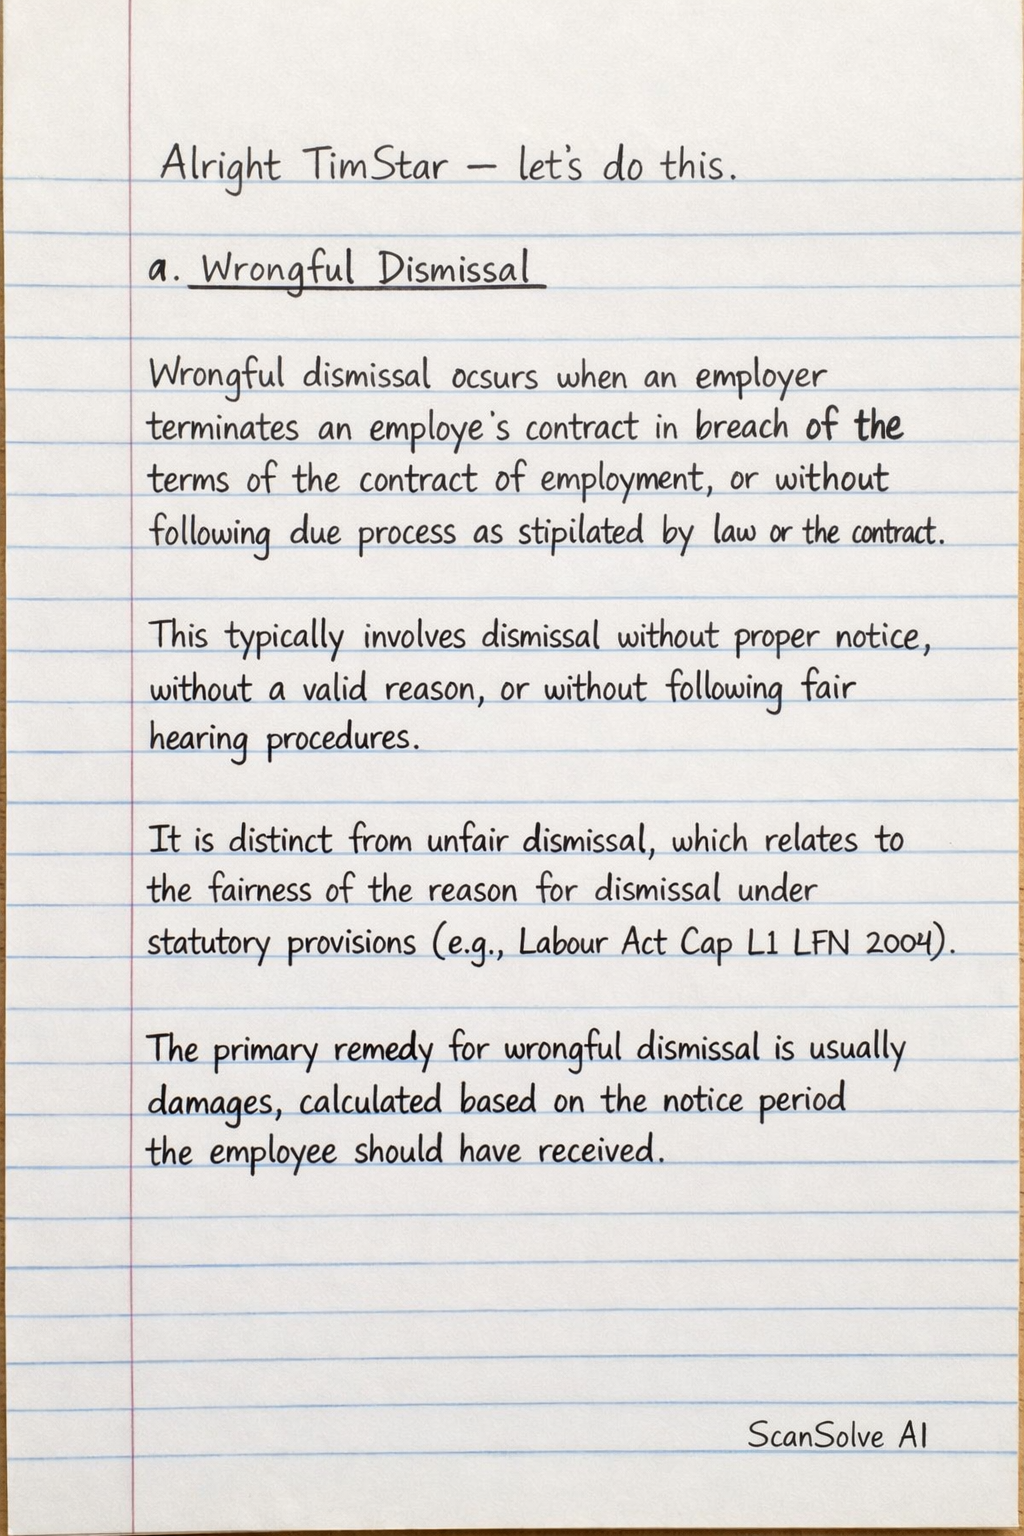 Alright TimStar — let's do this.
a. Wrongful Dismissal
Wrongful dismissal ocsurs when an employer
terminates an employe's contract in breach of the
terms of the contract of employment, or without
following due process as stipilated by law or the contract.
This typically involves dismissal without proper notice,
without a valid reason, or without following fair
hearing procedures.
It is distinct from unfair dismissal, which relates to
the fairness of the reason for dismissal under
statutory provisions (e.g., Labour Act Cap L1 LFN 2004).
The primary remedy for wrongful dismissal is usually
damages, calculated based on the notice period
the employee should have received.
ScanSolve AI